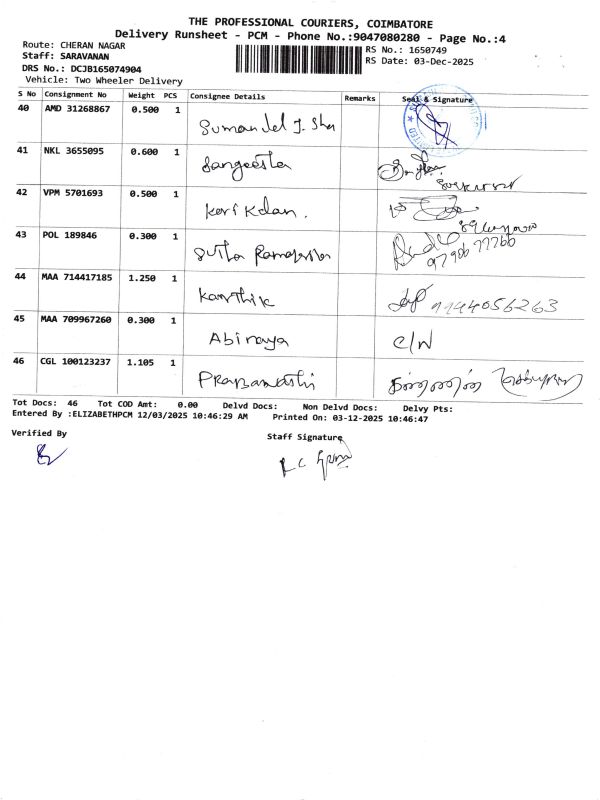 THE PROFESSIONAL COURIERS, COIMBATORE
Delivery Runsheet - PCM - Phone No.:9047080280 - Page No.:4
Route: CHERAN NAGAR
RS No.: 1650749
Staff: SARAVANAN
RS Date: 03-Dec-2025
DRS No.: DCJB165074904
Vehicle: Two Wheeler Delivery
S No Consignment No Weight PCS Consignee Details Remarks Seal & Signature
40 AMD 31268867 0.500 1
41 NKL 3655095 0.600 1 Sangeetha
42 VPM 5701693 0.500 1
43 POL 189846 0.300 1
97906 77766
44 MAA 714417185 1.250 1 Karthik 9944056263
45 MAA 709967260 0.300 1 Abinaya C/N
46 CGL 100123237 1.105 1
Tot Docs: 46 Tot COD Amt: 0.00 Delvd Docs: Non Delvd Docs: Delvy Pts:
Entered By :ELIZABETHPCM 12/03/2025 10:46:29 AM Printed On: 03-12-2025 10:46:47
Verified By
Staff Signature